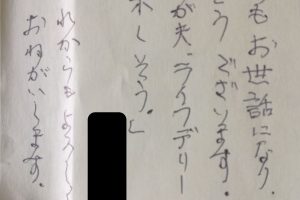 もお世話になり、
うございます。
が夫、ライフデリー
れしそう。」
れからもよろしく
おねがいします。